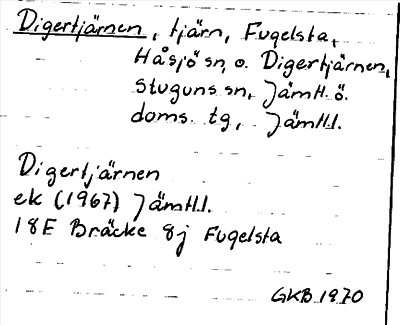 Digertjärnen, tjärn, Fugelsta,
Håsjö sn, o. Digertjärnen,
Stuguns sn, Jämtl. ö.
doms. tg, Jämtl.
Digertjärnen
ek (1967) Jämtl.
18E Bräcke 8j Fugelsta
GKB 1970